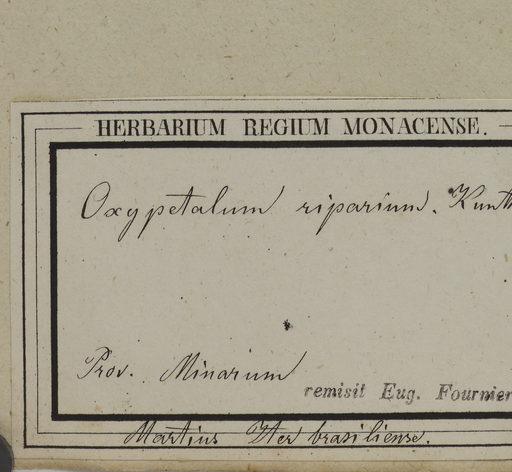 HERBARIUM REGIUM MONACENSE.
Oxypetalum riparium. Kunth
Prov. Minarum
remisit Eug. Fournier
Martius Iter brasiliense.